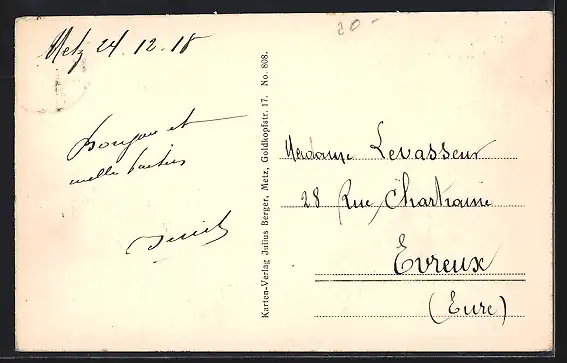 20-
Metz 24.12.18
Bonjour et
mille baisers
Karten-Verlag Julius Berger, Metz, Goldkopfstr. 17. No. 808.
Madame Levasseur
28 Rue Chartraine
Evreux
(Eure)